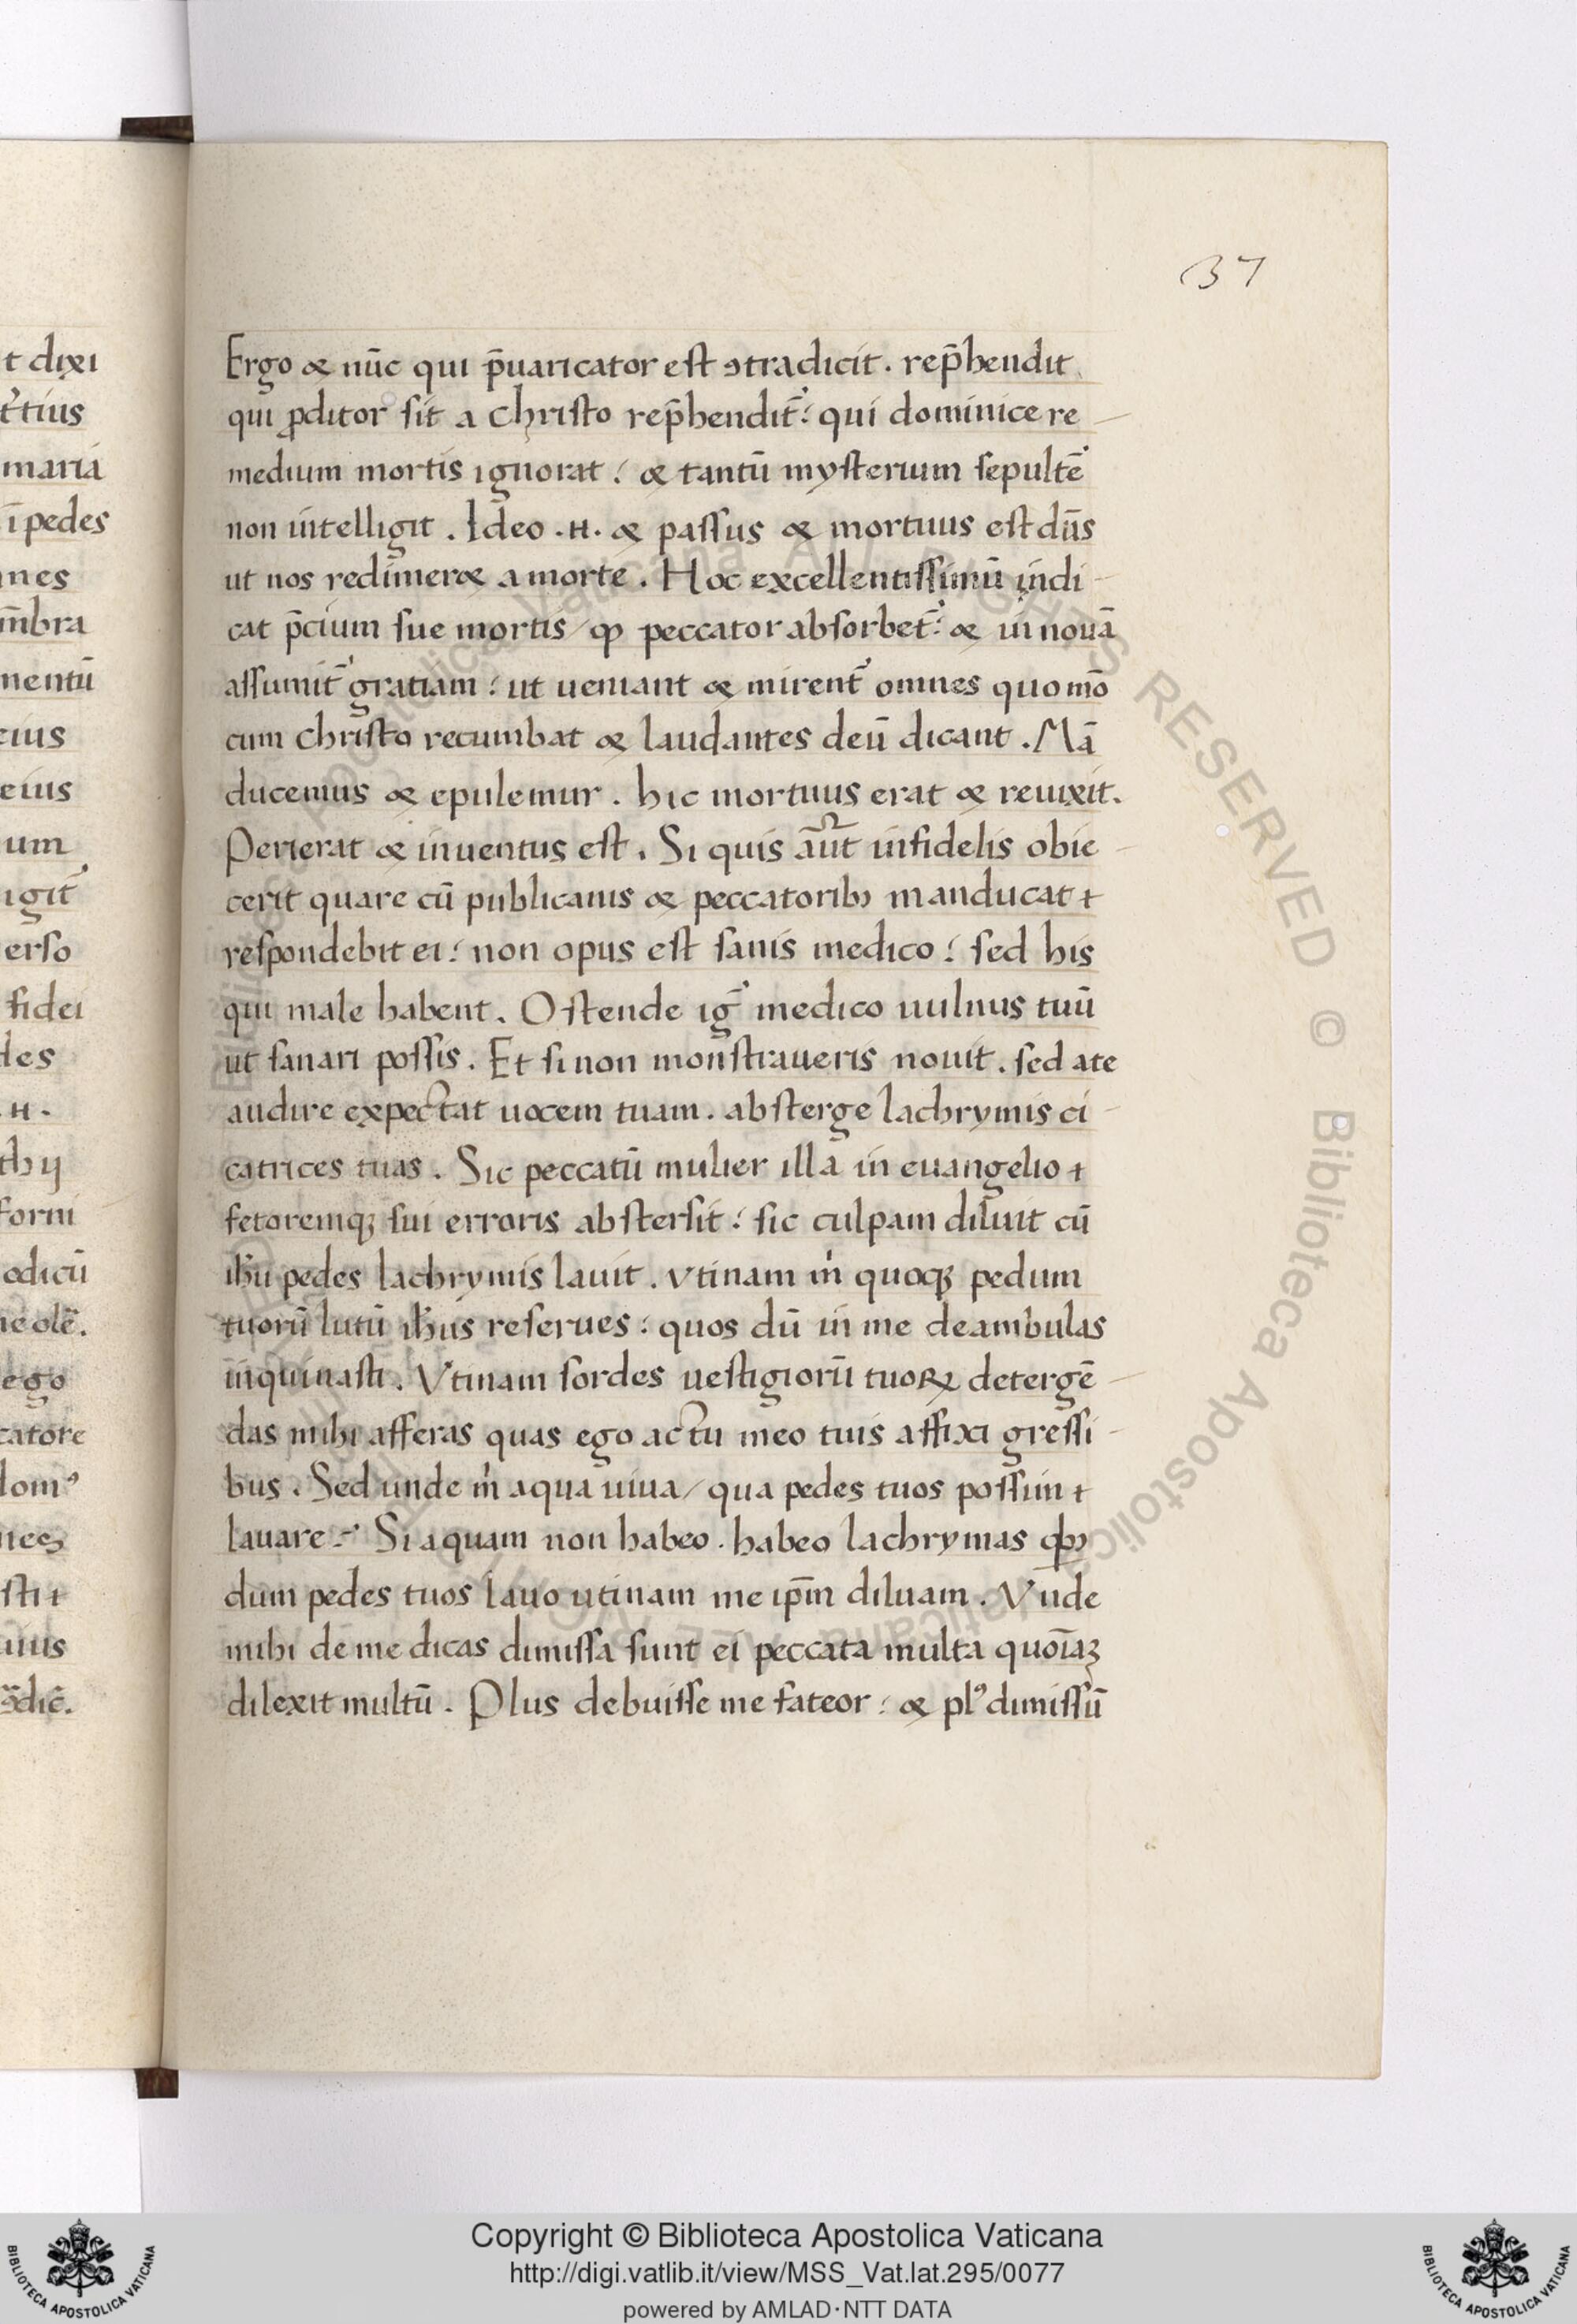 37
t dixi
t'tius
maria
ī pedes
mnes
m̄bra
mentū
eius
eius
um
igit᷑
erso
fidei
des
.H.
thij
formi
odicū
ne olē.
ego
catore
dom⁹
nieꝫ
sti t
uius
ꝯ̄dic̄.
Ergo & nūc qui p̄uaricator est ꝯtradicit. rep̄hendit
qui ꝓditor sit a Christo rep̄hendit᷑: qui dominice re-
medium mortis ignorat: & tantū mysterium sepulte᷑
non intelligit. Ideo .H. & passus & mortuus est dn̄s
ut nos redimeret a morte. Hoc excellentissimū indi-
cat p̄cium sue mortis / ꝙ peccator absorbet᷑: & in nouā
assumit᷑ gratiam: ut ueniant & mirent᷑ omnes quomō
cum Christo recumbat & laudantes deū dicant. Mā
ducemus & epulemur. hic mortuus erat & reuixit.
Perierat & inuentus est. Si quis aūt infidelis obie-
cerit quare cū publicanis & peccatoribꝫ manducat t
respondebit ei: non opus est sanis medico: sed his
qui male habent. Ostende ig᷑ medico uulnus tuū
ut sanari possis. Et si non monstraueris nouit. sed ate
audire expectat uocem tuam. absterge lachrymis ci-
catrices tuas. Sic peccatū mulier illa in euangelio t
fetoremqꝫ sui erroris abstersit: sic culpam diluit cū
ih̄u pedes lachrymis lauit. vtinam m̍ quoqꝫ pedum
tuorū lutū ih̄us reserues: quos dū in me deambulas
inquinasti. Vtinam sordes uestigiorū tuoꝝ detergē-
das mihi afferas quas ego actu meo tuis affixi gressi-
bus. Sed unde m̍ aqua uiua / qua pedes tuos possim t
lauare? Si aquam non habeo. habeo lachrymas qb̓ꝫ
dum pedes tuos lauo utinam me ip̄m diluam. Vnde
mihi de me dicas dimissa sunt ei peccata multa quoīaꝫ
dilexit multū. Plus debuisse me fateor: & pl⁹ dimissū
© Biblioteca Apostolica Vaticana ALL RIGHTS RESERVED
Copyright © Biblioteca Apostolica Vaticana
http://digi.vatlib.it/view/MSS_Vat.lat.295/0077
powered by AMLAD·NTT DATA
BIBLIOTECA APOSTOLICA VATICANA
BIBLIOTECA APOSTOLICA VATICANA